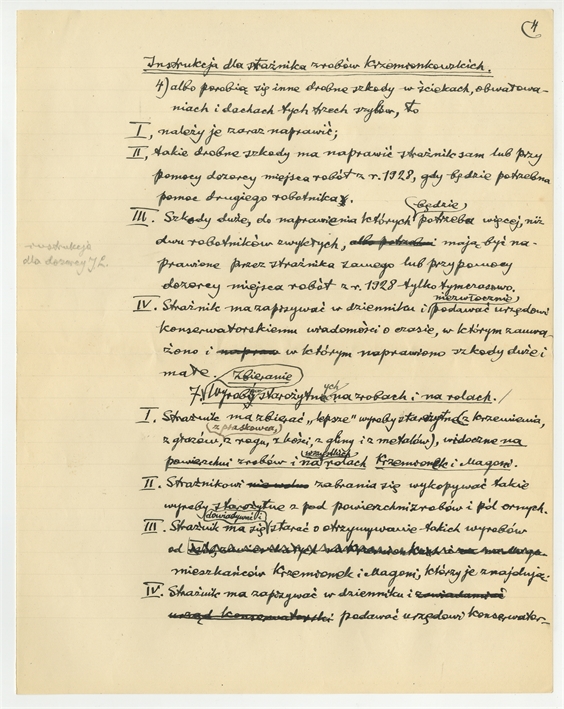 4
Instrukcja dla strażnika zrobów Krzemionkowskich.
4) albo porobią się inne drobne szkody w ściekach, obwałowa-
niach i dachach tych trzech szybów, to
I, należy je zaraz naprawić;
II, takie drobne szkody ma naprawić strażnik sam lub przy
pomocy dozorcy miejsca robót z r. 1928, gdy będzie potrzebna
pomoc drugiego robotnika.
będzie
III. Szkody duże, do naprawienia których potrzeba więcej, niż
dwu robotników zwykłych, albo potrzeba mają być na-
prawione przez strażnika samego lub przy pomocy
dozorcy miejsca robót z r. 1928 tylko tymczasowo.
instrukcja
dla dozorcy J.L.
niezwłocznie
IV. Strażnik ma zapisywać w dzienniku i podawać urzędowi
konserwatorskiemu wiadomości o czasie, w którym zauwa-
żono i napraw w którym naprawiono szkody duże i
małe.
Zbieranie
7. Wyroby starożytnych na zrobach i na rolach.
I. Strażnik ma zbierać „lepsze" wyroby starożytne (z krzemienia,
z piaskowca,
z głazów, z rogu, z kości, z gliny i z metalów), widoczne na
wszystkich
powierzchni zrobów i na rolach Krzemionek i Magoni.
II. Strażnikowi niewolno zabrania się wykopywać takie
wyroby starożytne z pod powierzchni zrobów i pól ornych.
dowiadywać i
III. Strażnik ma się starać o otrzymywanie takich wyrobów
od
mieszkańców Krzemionek i Magoni, którzy je znajdują.
IV. Strażnik ma zapisywać w dzienniku i zawiadamiać
urząd konserwatorski podawać urzędowi konserwator-